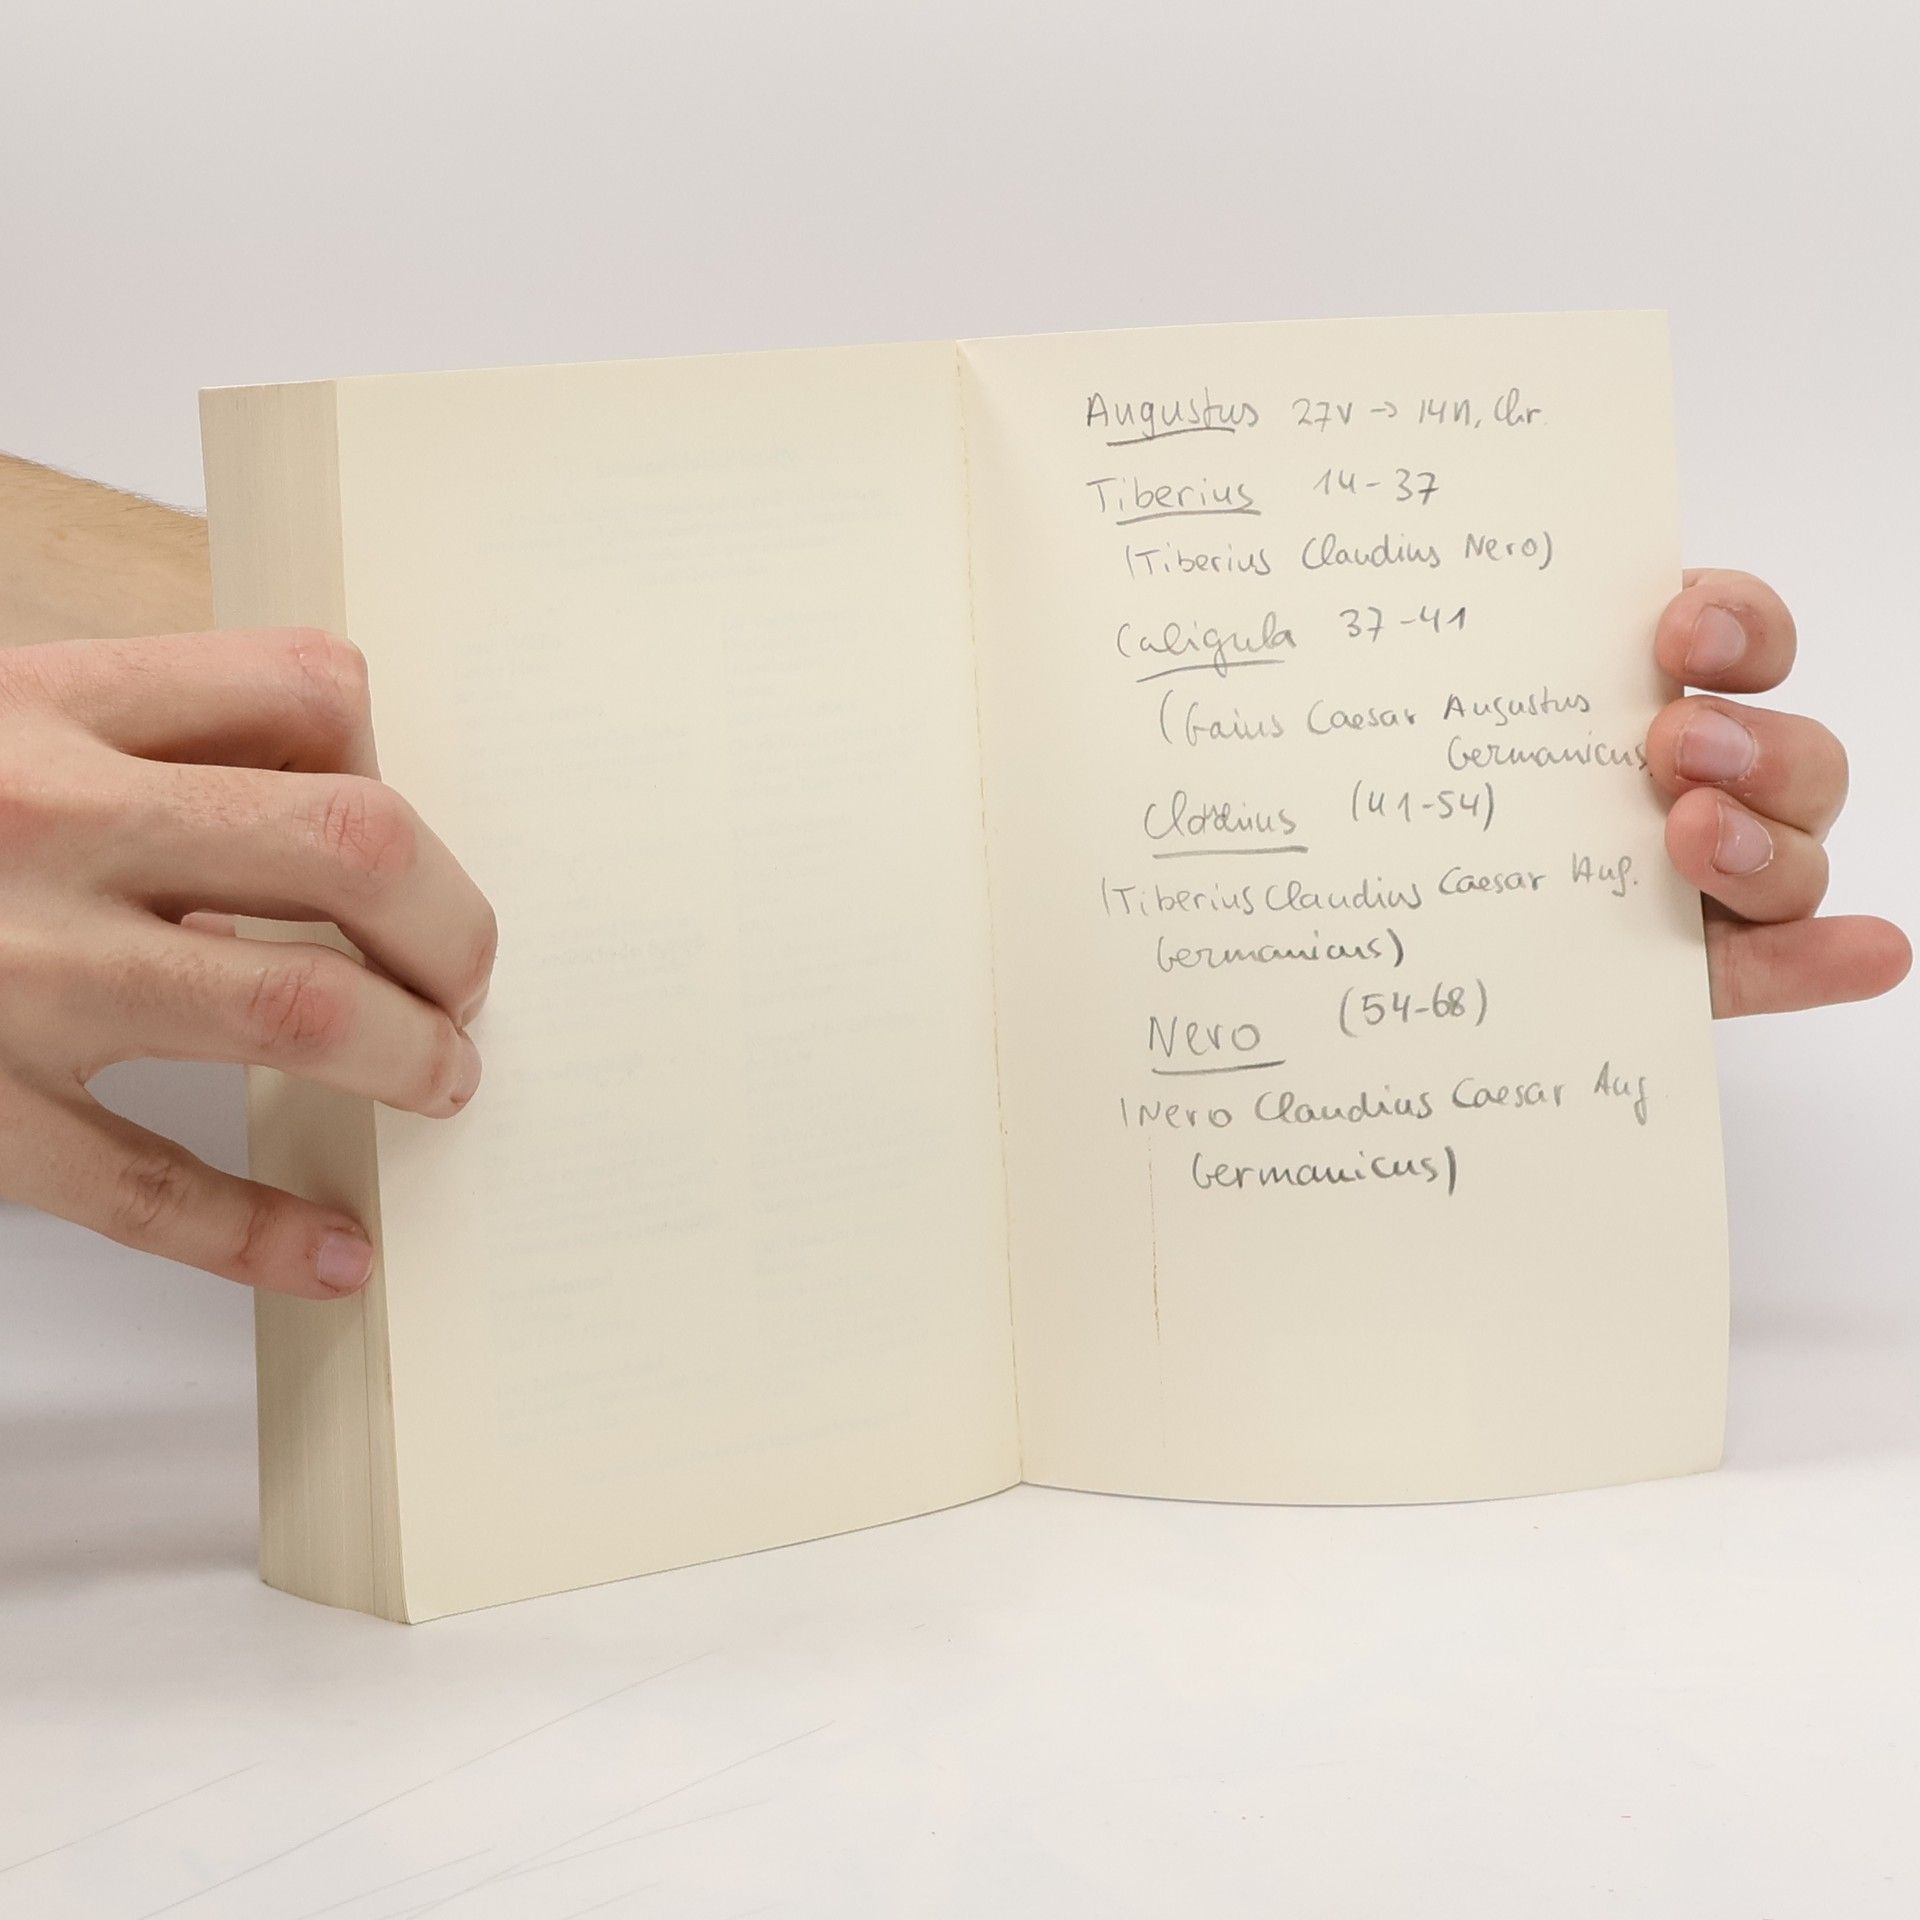 Augustus 27v → 14n, Chr.
Tiberius 14-37
(Tiberius Claudius Nero)
Caligula 37-41
(Gaius Caesar Augustus
Germanicus
(41-54)
(Tiberius Claudius Caesar Aug.
Germanicus)
Nero (54-68)
(Nero Claudius Caesar Aug
Germanicus)